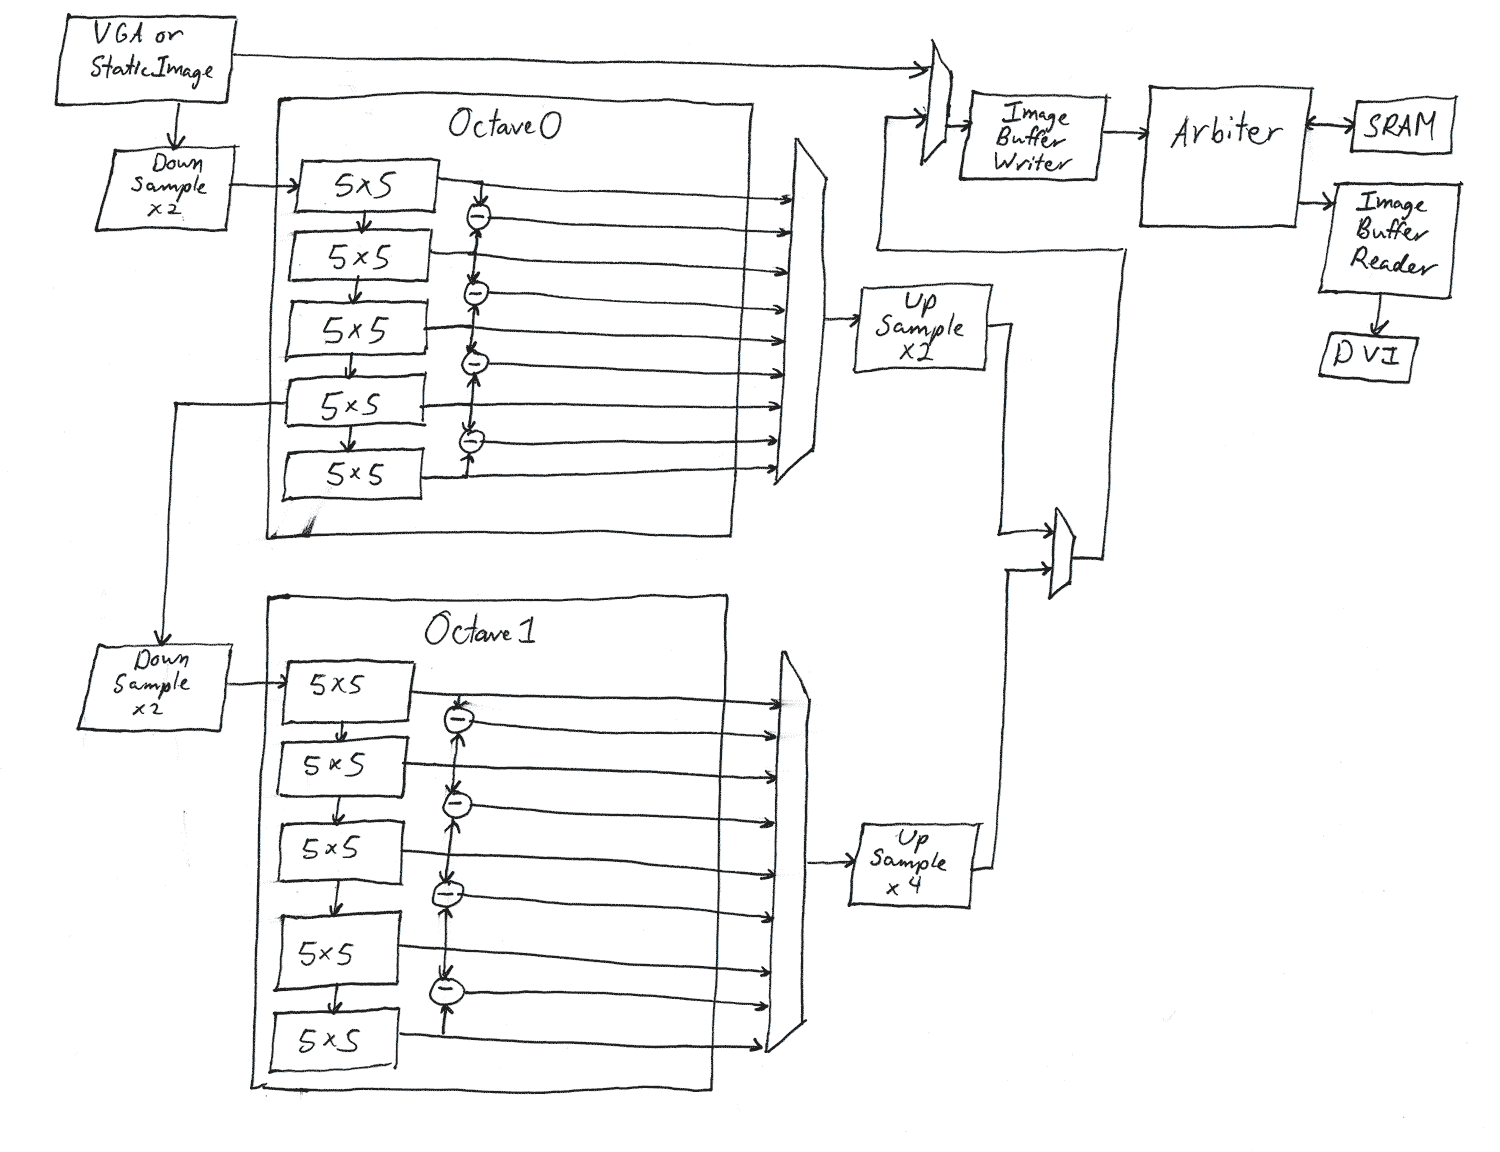 VGA or
Static Image
Down
Sample
x2
Octave 0
5x5
5x5
5x5
5x5
5x5
-
-
-
-
Up
Sample
x2
Image
Buffer
Writer
Arbiter
SRAM
Image
Buffer
Reader
DVI
Down
Sample
x2
Octave 1
5x5
5x5
5x5
5x5
5x5
-
-
-
-
Up
Sample
x4